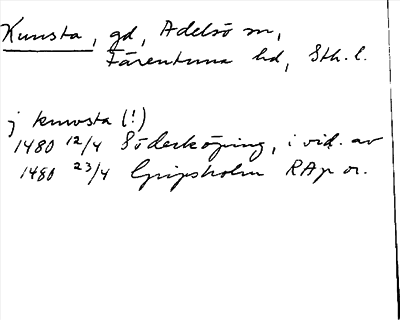 Kunsta, gd, Adelsö sn,
Färentuna hd, Sth. l.
j knwsta (!)
1480 12/4 Söderköping, i vid. av
1480 23/4 Gripsholm RAp or.